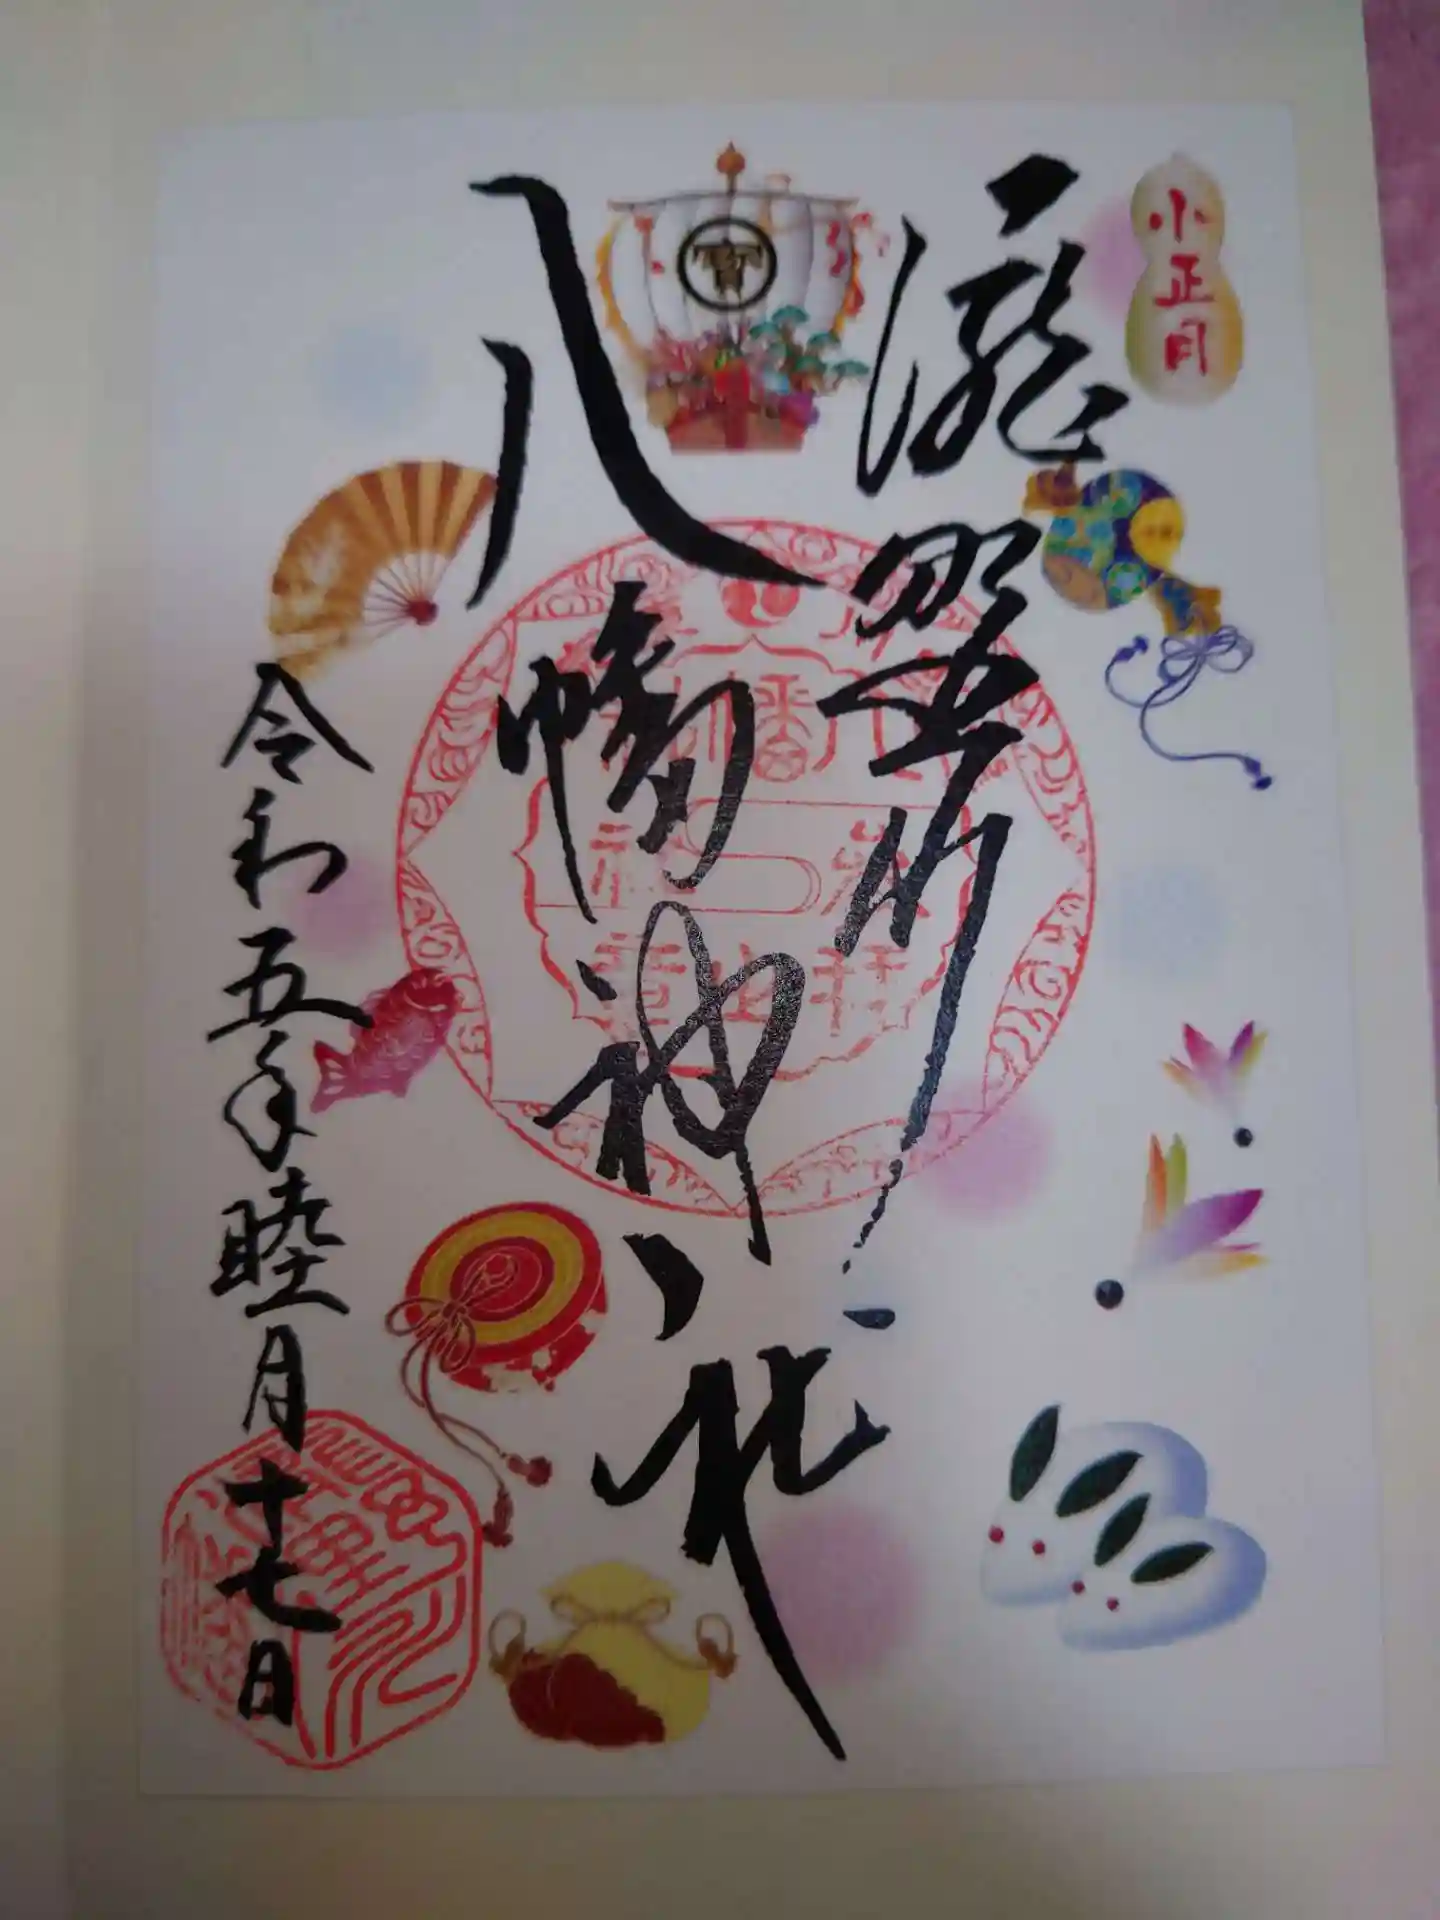 小正月
瀧野川
八幡神社
令和五年睦月十七日
寳